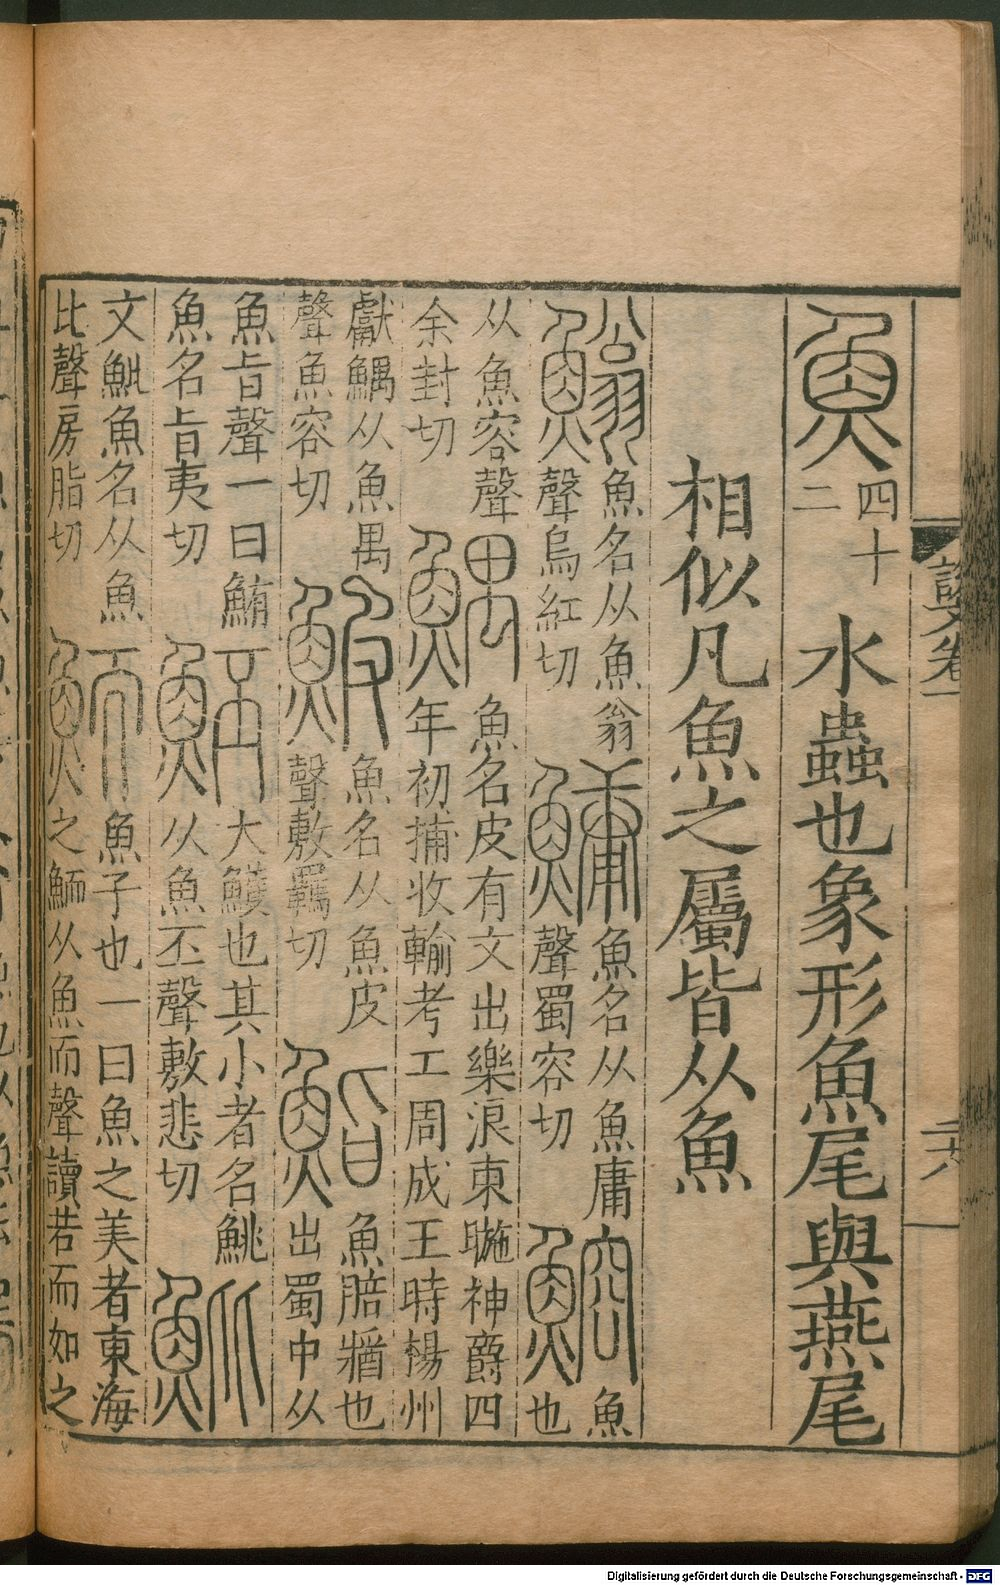 說文卷一
魚四十二水蟲也象形魚尾與燕尾
相似凡魚之屬皆从魚
䱵魚名从魚翁聲烏紅切鱅魚名从魚庸聲蜀容切鰫魚也
从魚容聲余封切鰅魚名皮有文出樂浪東暆神爵四年初捕收輸考工周成王時楊州
獻鰅从魚禺聲魚容切鮍魚名从魚皮聲敷羈切鮨魚也出蜀中从
魚旨聲一曰鮪魚名旨夷切魾大鱯也其小者名鮡从魚丕聲敷悲切魮
文魮魚名从魚比聲房脂切鮞魚子也一曰魚之美者東海之鮞从魚而聲讀若而如之
Digitalisierung gefördert durch die Deutsche Forschungsgemeinschaft - DFG